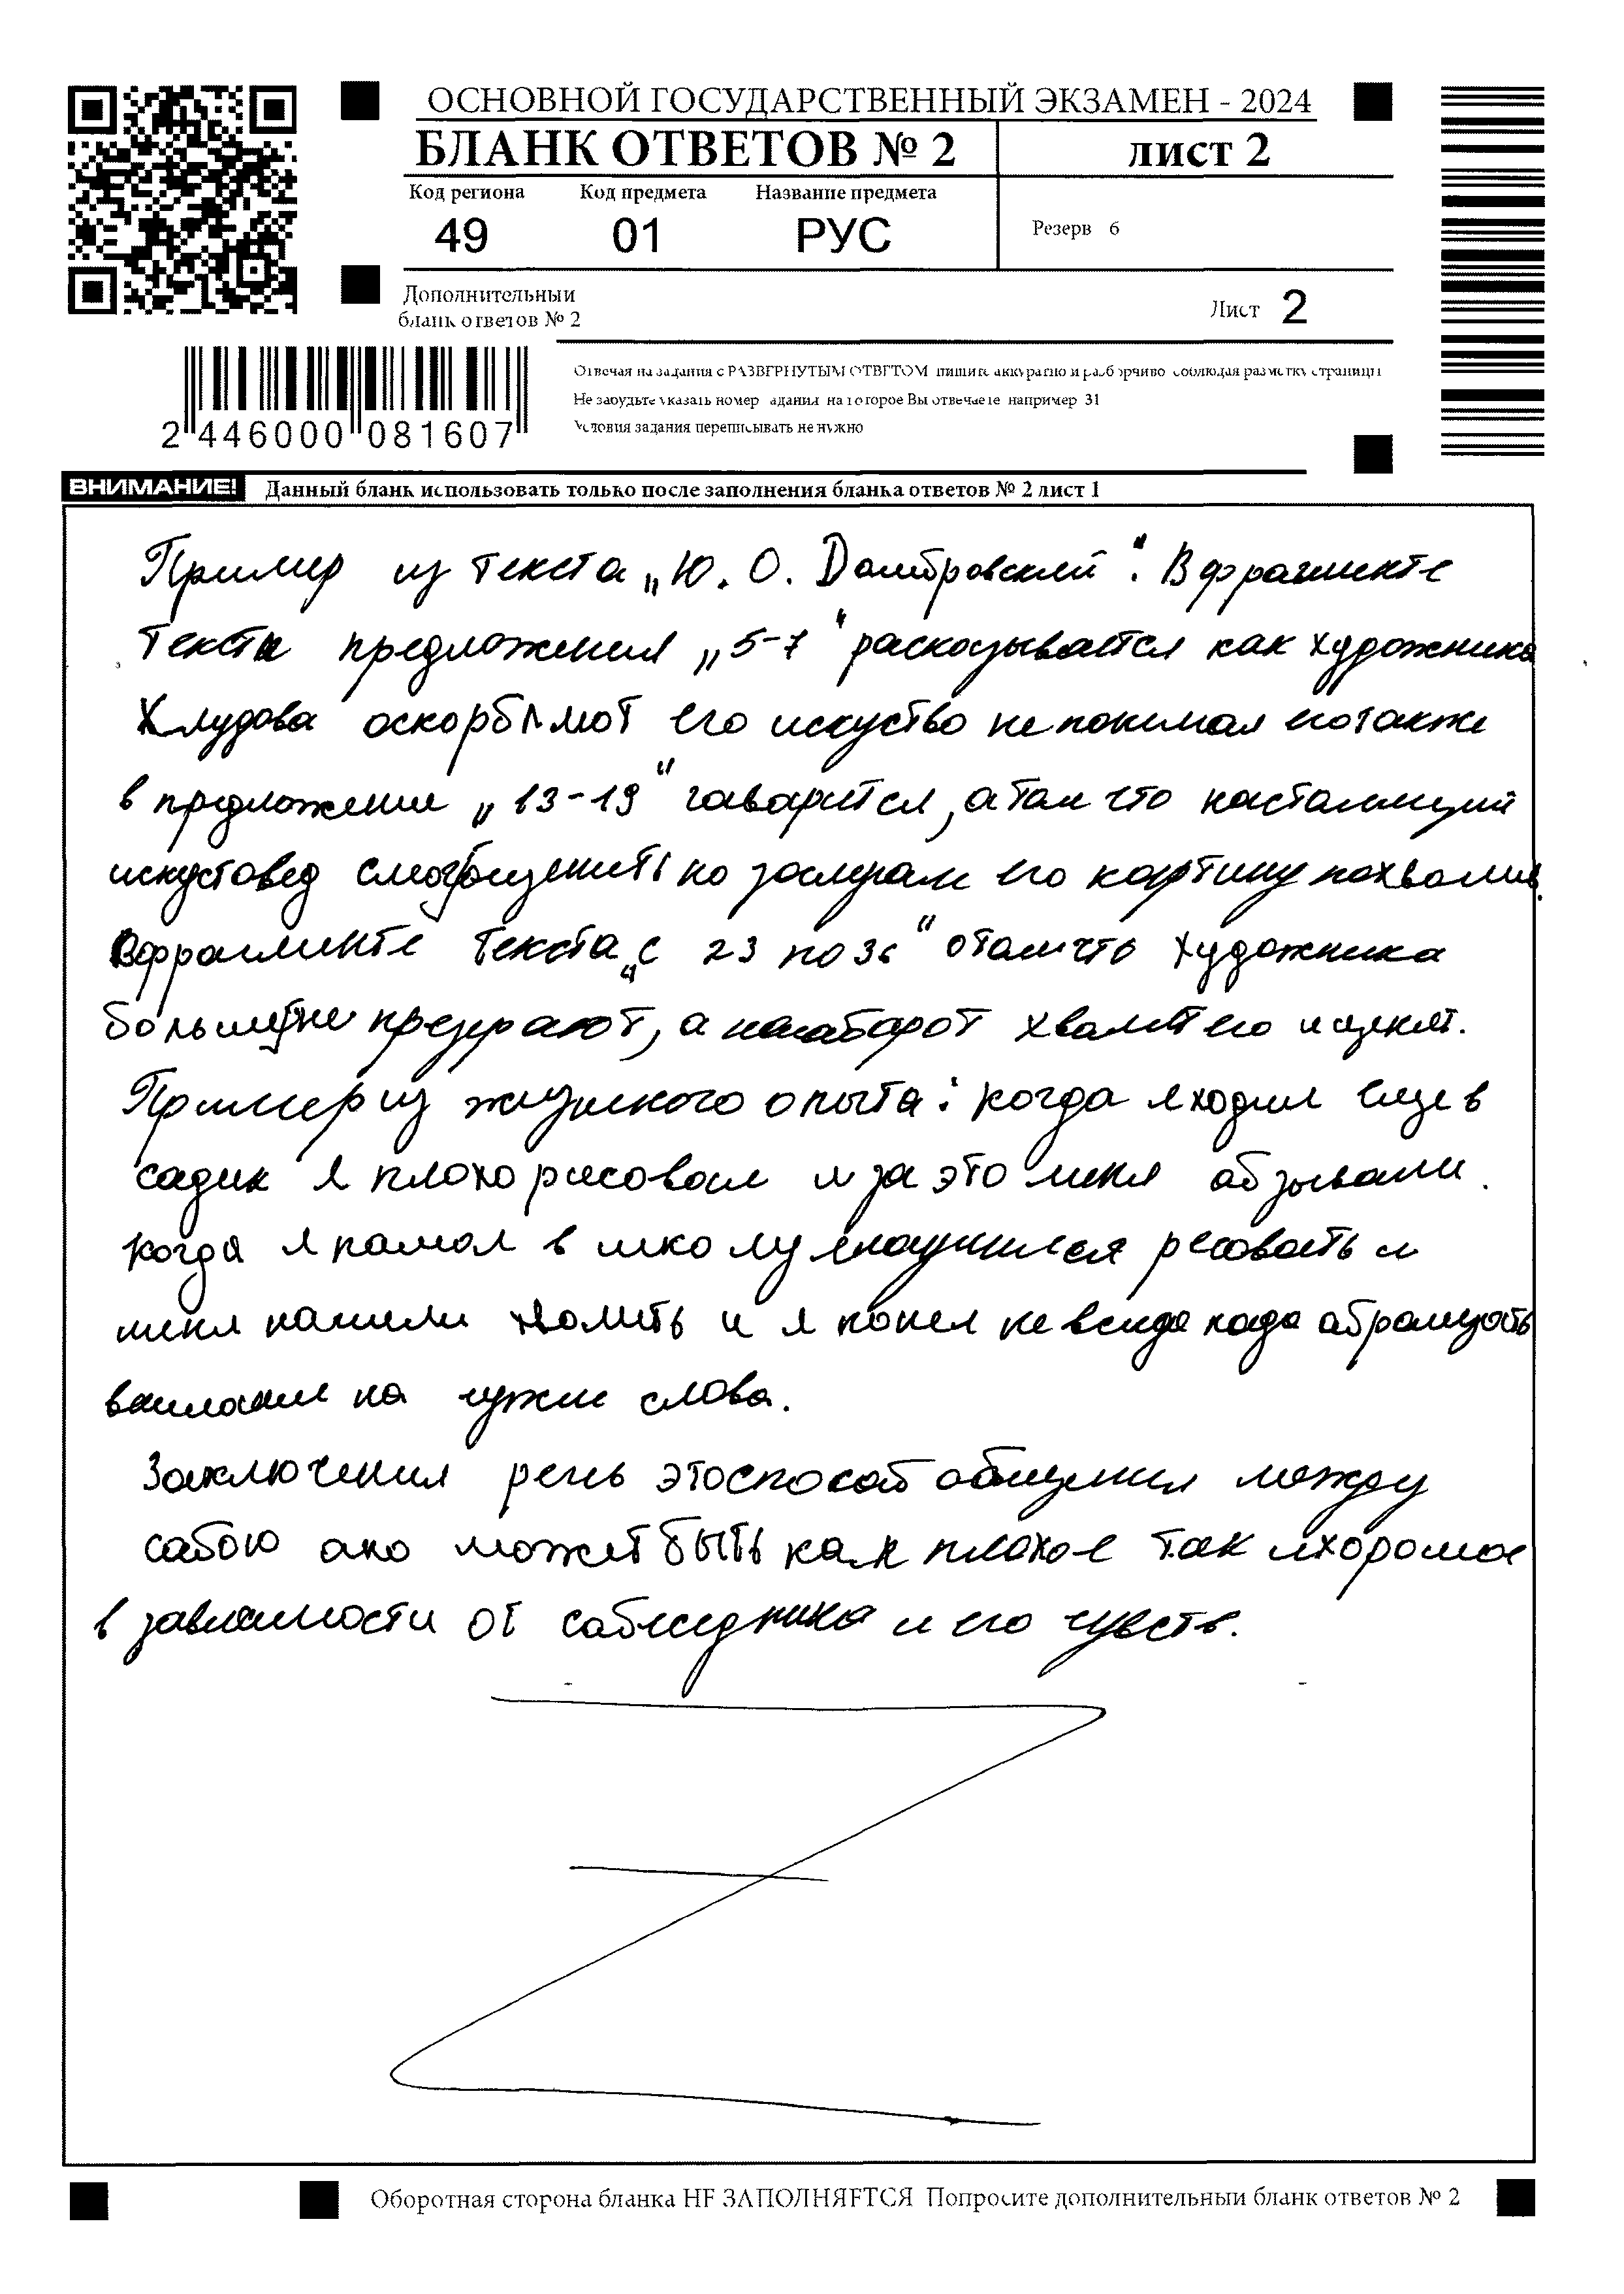 ОСНОВНОЙ ГОСУДАРСТВЕННЫЙ ЭКЗАМЕН - 2024
БЛАНК ОТВЕТОВ № 2
лист 2
Код региона
Код предмета
Название предмета
49
01
РУС
Резерв 6
Дополнительный
бланк ответов № 2
Лист 2
Отвечая на задания с РАЗВЕРНУТЫМ ОТВЕТОМ пишите аккуратно и разборчиво соблюдая разметку страницы
Не забудьте указать номер задания на которое Вы отвечаете например 31
Условия задания переписывать не нужно
2 446000 081607
ВНИМАНИЕ! Данный бланк использовать только после заполнения бланка ответов № 2 лист 1
Пример из текста „Ю. О. Домбровский“. В фрагменте
текста предложения „5-7“ расказывается как художника
Хлудова оскорбляют его искуство не понимая его также
в предложении „13-19“ гаварится, а том что настаищий
искуствовед смог оценить по заслугам его картину похвалив.
Вфрагменте текста „с 23 по 36“ отом что художника
больше не презирают, а наабарот хвалят его и ценят.
Пример из жизненого опыта: когда я ходил еще в
садик я плохо рисовал и за это меня абзывали.
когда я пашол в школу я научился рисовать и
меня начили хвалить и я понел не всигда нада абращать
внимание на чужие слова.
Заключения речь этоспосаб общения между
сабою ано может быть как плохое так и хорошое
в зависимости от сабеседника и его чувств.
Оборотная сторона бланка НЕ ЗАПОЛНЯЕТСЯ Попросите дополнительный бланк ответов № 2